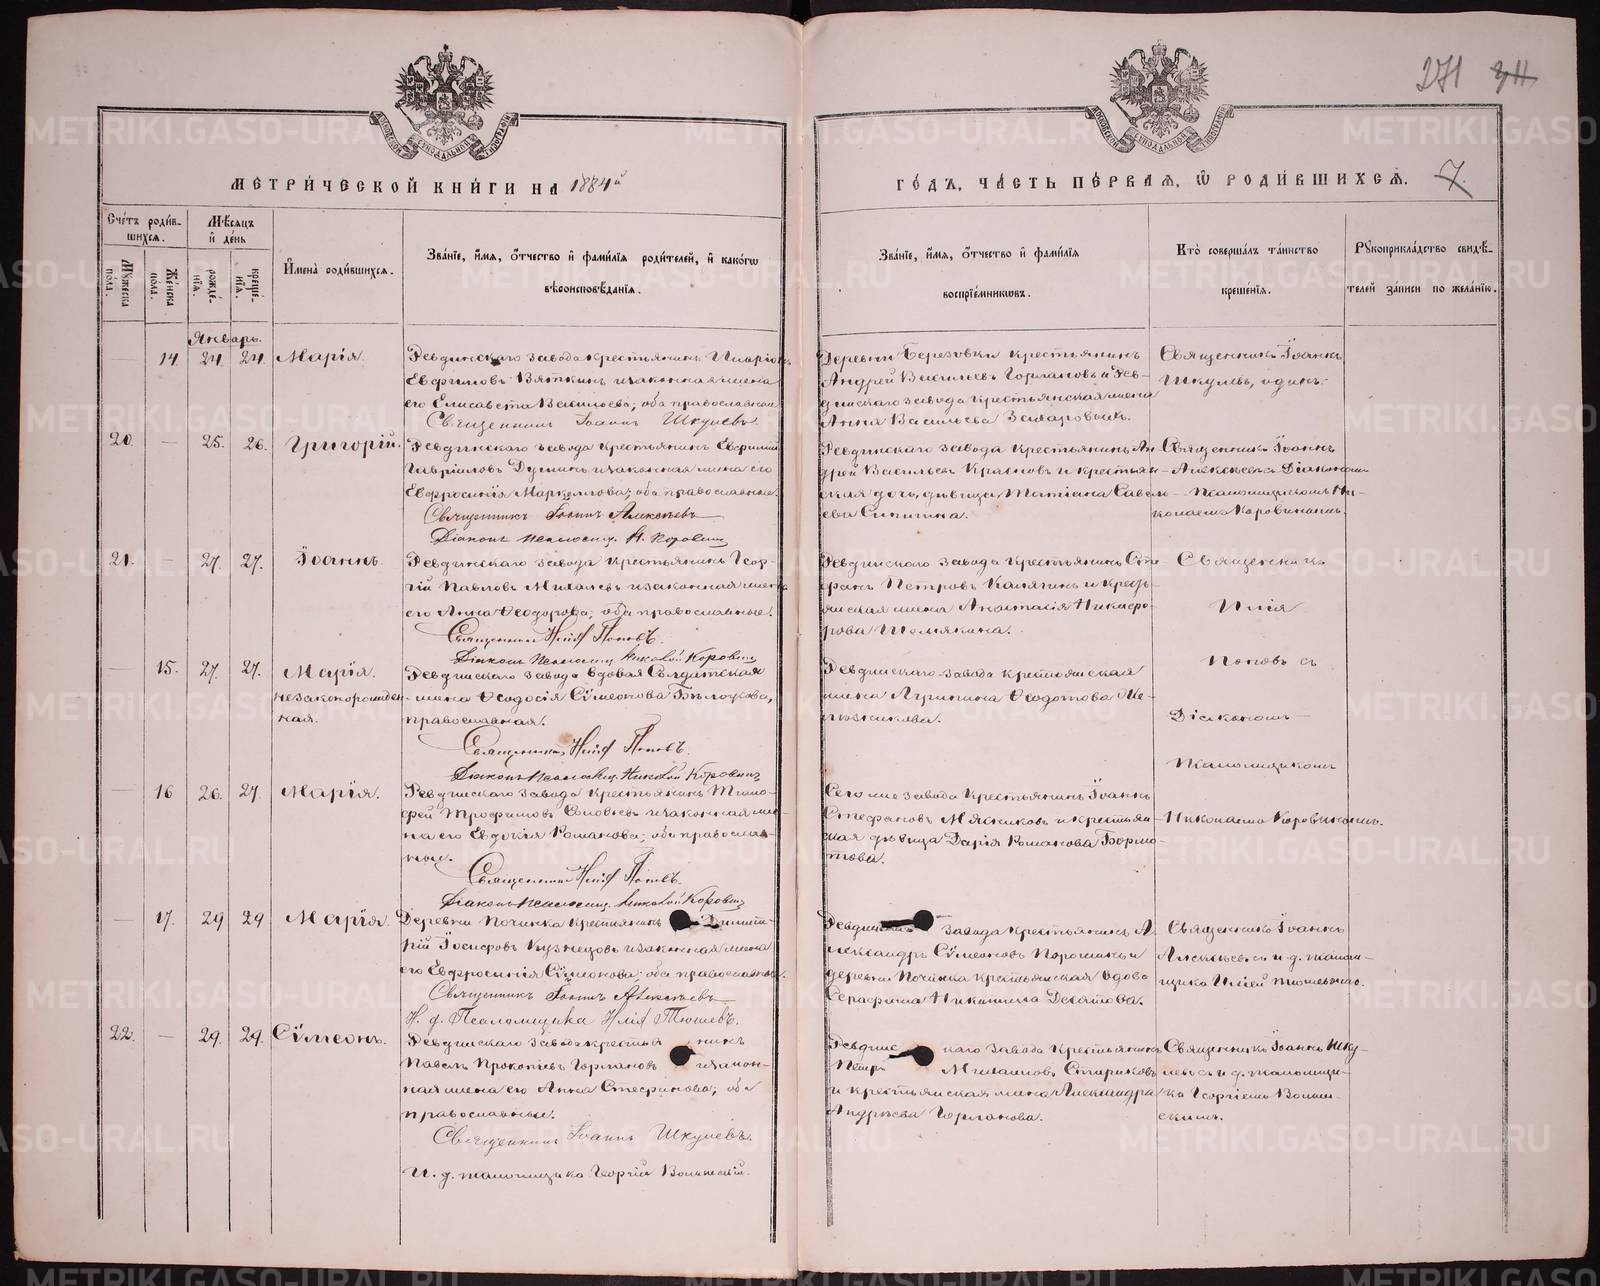 271
МЕТРИЧЕСКОЙ КНИГИ НА 1884й
ГОДЪ, ЧАСТЬ ПЕРВАЯ, Ѽ РОДИВШИХСЯ. 7
Счетъ родив-
шихся.
Мѣсяцъ
и день
Мꙋжеска
пола.
Женска
пола.
рожде-
нія.
креще-
нія.
Имена родившихся.
Званіе, имя, отчество и фамилія родителей, и какогѡ
вѣроисповѣданія.
Званіе, имя, отчество и фамилія
воспріемникѡвъ.
Кто совершалъ таинство
крещенія.
Рꙋкоприкладство свидѣ-
телей записи по желанію.
Январь.
14 24 24 Марія.
Ревдинскаго завода крестьянинъ Иларіонъ
Евфимовъ Вяткинъ и законная жена
его Елисавета Васильева; оба православные
Священникъ Іоаннъ Шкулевъ
Деревни Березовки крестьянинъ
Андрей Васильевъ Горлановъ и Рев-
динскаго завода крестьянская жена
Анна Васильева
Священникъ Іоаннъ
Шкулевъ, одинъ.
20. — 25. 26. Григорій.
Ревдинскаго завода крестьянинъ Евфимій
Гавріиловъ и законная жена его
Евфросинія Маркелова; оба православные.
Священникъ Іоаннъ Алексѣевъ
Діаконъ псаломщ. Н. Коровинъ
Ревдинскаго завода крестьянинъ Ан-
дрей Васильевъ и крестьян-
ская дочь, дѣвица Татіана Савель-
ева
Священникъ Іоаннъ
Алексѣевъ съ Діакономъ
псаломщикомъ Ни-
колаемъ Коровинымъ.
21. — 27. 27. Іоаннъ
Ревдинскаго завода крестьянинъ Геор-
гій Павловъ и законная жена
его Анна Ѳеодорова; оба православные.
Священникъ Илія Поповъ.
Діаконъ псаломщ. Николай Коровинъ
Ревдинскаго завода крестьянинъ Сте-
фанъ Петровъ и кресть-
янская жена Анастасія Никифо-
рова Шемякина.
Священникъ
Илія
Поповъ съ
Діакономъ
псаломщикомъ
Николаемъ Коровинымъ.
15. 27. 27. Марія.
незаконорожден-
ная.
Ревдинскаго завода вдовая солдатская
жена Ѳеодосія Сѵмеонова
православная.
Священникъ Илія Поповъ.
Діаконъ псаломщ. Николай Коровинъ
Ревдинскаго завода крестьянская
жена Агрипина Ѳеодотова
16 26. 27. Марія.
Ревдинскаго завода крестьянинъ Тимо-
фей Трофимовъ и законная же-
на его Евдокія Романова; оба православ-
ные.
Священникъ Илія Поповъ.
Діаконъ псаломщ. Николай Коровинъ
Сего же завода крестьянинъ Іоаннъ
Стефановъ Мясниковъ и крестьян-
ская дѣвица Дарія Романова
17. 29 29 Марія.
Деревни Починка крестьянинъ Димит-
рій Кузнецовъ и законная жена
его Евфросинія Сѵмеонова; оба православные.
Священникъ Іоаннъ Алексѣевъ
И. д. Псаломщика Илія Тюшевъ.
завода крестьянинъ А-
лександръ Сѵмеоновъ и
деревни Починка крестьянская вдова
Серафима Никитина Девятова.
Священникъ Іоаннъ
Алексѣевъ съ и. д. псалом-
щика Иліей Тюшевымъ.
22. — 29. 29. Сѵмеонъ.
Ревдинскаго завода крестьянинъ
Павелъ Прокопьевъ Горлановъ и закон-
ная жена его Анна Стефанова; оба
православные.
Священникъ Іоаннъ Шкулевъ.
И. д. псаломщика Георгій
Ревдинскаго завода крестьянинъ
Петръ Михаиловъ Стариковъ
и крестьянская жена Александра
Андреева Горланова.
Священникъ Іоаннъ Шку-
левъ съ и. д. псаломщи-
ка Георгіемъ
METRIKI.GASO-URAL.RU